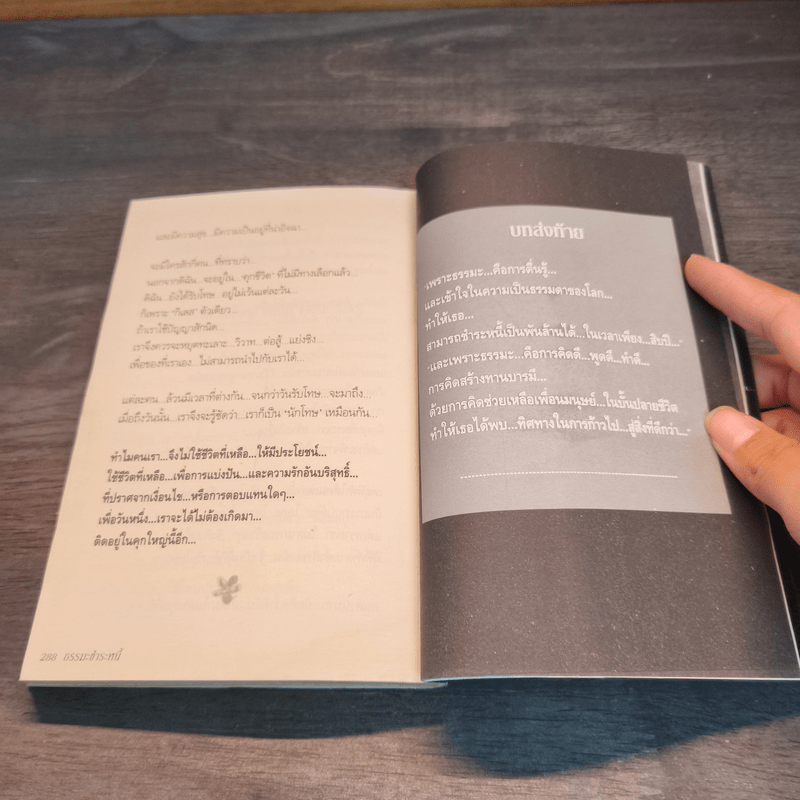 และมีความสุข...มีความเป็นอยู่ที่น่าอิจฉา...
จะมีใครสักกี่คน...ที่ทราบว่า...
นอกจากดิฉัน...จะอยู่ใน...‘คุกชีวิต’ ที่ไม่มีทางเลือกแล้ว...
ดิฉัน...ยังได้รับโทษ...อยู่ไม่เว้นแต่ละวัน...
ก็เพราะ ‘กิเลส’ ตัวเดียว...
ถ้าเราใช้ปัญญาสักนิด...
เราจึงควรจะหยุดทะเลาะ...วิวาท...ต่อสู้...แย่งชิง...
เพื่อของที่เราเอง...ไม่สามารถนำไปกับเราได้...
แต่ละคน...ล้วนมีเวลาที่ต่างกัน...จนกว่าวันรับโทษ...จะมาถึง...
เมื่อถึงวันนั้น...เราจึงจะรู้ชัดว่า...เราก็เป็น ‘นักโทษ’ เหมือนกัน...
ทำไมคนเรา...จึงไม่ใช้ชีวิตที่เหลือ...ให้มีประโยชน์...
ใช้ชีวิตที่เหลือ...เพื่อการแบ่งปัน...และความรักอันบริสุทธิ์...
ที่ปราศจากเงื่อนไข...หรือการตอบแทนใดๆ...
เพื่อวันหนึ่ง...เราจะได้ไม่ต้องเกิดมา...
ติดอยู่ในคุกใหญ่นี้อีก...
288 ธรรมะชำระหนี้
บทส่งท้าย
“เพราะธรรมะ...คือการตื่นรู้...
และเข้าใจในความเป็นธรรมดาของโลก...
ทำให้เธอ...
สามารถชำระหนี้เป็นพันล้านได้...ในเวลาเพียง...สิบปี...”
“และเพราะธรรมะ...คือการคิดดี...พูดดี...ทำดี...
การคิดสร้างทานบารมี...
ด้วยการคิดช่วยเหลือเพื่อนมนุษย์...ในบั้นปลายชีวิต
ทำให้เธอได้พบ...ทิศทางในการก้าวไป...สู่สิ่งที่ดีกว่า...”